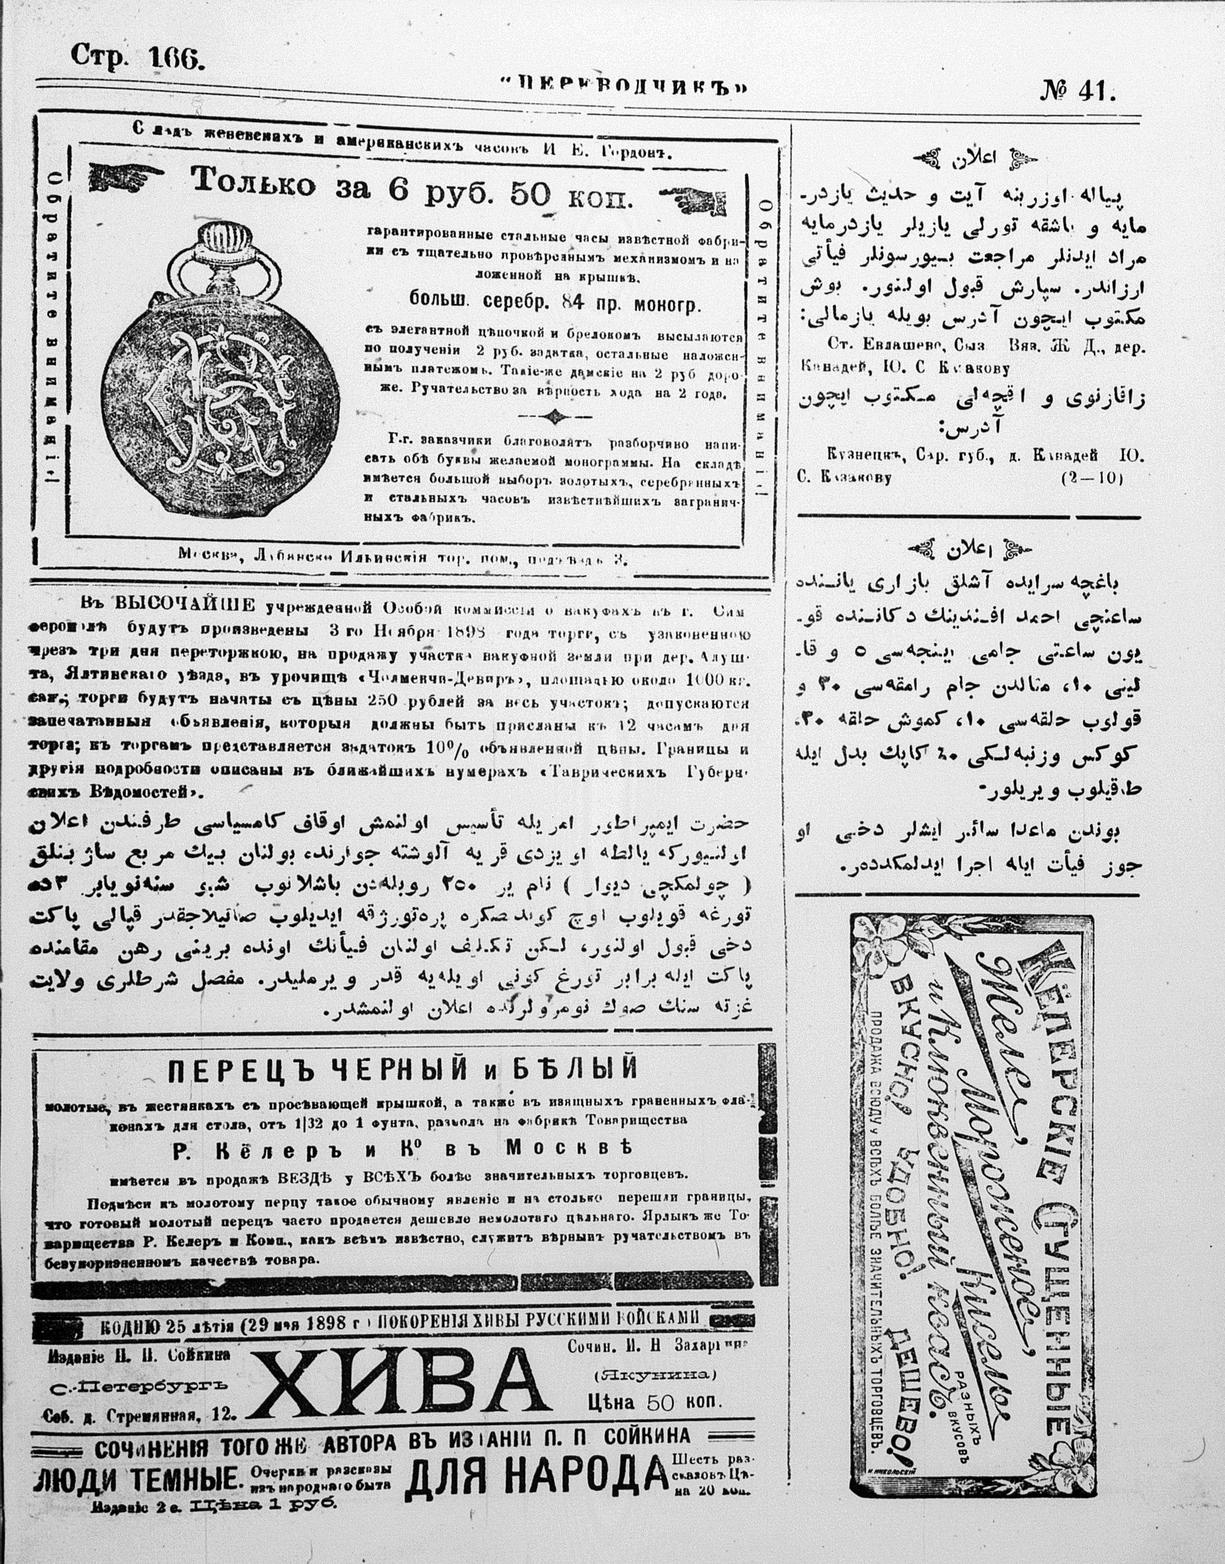 Стр. 166.
“ПЕРЕВОДЧИКЪ”
№ 41.
Складъ женевскихъ и американскихъ часовъ И. Е. Гордонъ.
Обратите вниманіе!
Только за 6 руб. 50 коп.
Обратите вниманіе!
гарантированные стальные часы извѣстной фабри-
ки съ тщательно провѣреннымъ механизмомъ и на
ложенной на крышкѣ.
больш. серебр. 84 пр. моногр.
съ элегантной цѣпочкой и брелокомъ высылаются
по полученіи 2 руб. задатка, остальные наложен-
нымъ платежомъ. Такіе-же дамскіе на 2 руб доро-
же. Ручательство за вѣрность хода на 2 года.
Г.г. заказчики благоволятъ разборчиво напи-
сать обѣ буквы желаемой монограммы. На складѣ
имѣется большой выборъ золотыхъ, серебрянныхъ
и стальныхъ часовъ извѣстнѣйшихъ заграничч-
ныхъ фабрикъ.
Москва, Ильинскія тор. пом., подъѣздъ 3.
Въ ВЫСОЧАЙШЕ учрежденной Особой коммиссіи о вакуфахъ въ г. Сим
ферополѣ будутъ произведены 3 го Ноября 1898 года торги, съ узаконенною
чрезъ три дня переторжкою, на продажу участка вакуфной земли при дер. Алуш-
та, Ялтинскаго уѣзда, въ урочищѣ «Чолмекчи-Деваръ», площадью около 1000 кв.
саж.; торги будутъ начаты съ цѣны 250 рублей за весь участокъ; допускаются
запечатанныя объявленія, которыя должны быть присланы къ 12 часамъ дня
торга; къ торгамъ представляется задатокъ 10% объявленной цѣны. Границы и
другія подробности описаны въ ближайшихъ нумерахъ «Таврическихъ Губерн
скихъ Вѣдомостей».
حضرت ايمپراطور امريله تأسيس اولنمش اوقاف كامسياسى طرفندن اعلان
اولنيوركه يالطه اويزدى قريه آلوشته جوارنده بولنان بيك مربع ساژينلق
( چولمكچى ديوار ) نام ير ٢٥٠ روبله‌دن باشلانوب شبو سنه نويابر ٣ ده
تورغه قويلوب اوچ كوندنصكره پره‌تورژقه ايديلوب صاتيلاجقدر قپالى پاكت
دخى قبول اولنور، لكن تكليف اولنان فيأتك اونده برينى رهن مقامنده
پاكت ايله برابر تورغ كونى اويله‌يه قدر ويرمليدر. مفصل شرطلرى ولايت
غزته سنك صوك نومرولرنده اعلان اولنمشدر.
ПЕРЕЦЪ ЧЕРНЫЙ и БѢЛЫЙ
молотые, въ жестянкахъ съ просѣвающей крышкой, а также въ изящныхъ граненныхъ фла-
конахъ для стола, отъ 1|32 до 1 фунта, размола на фабрикѣ Товарищества
Р. Кёлеръ и Кº въ Москвѣ
имѣется въ продажѣ ВЕЗДѢ у ВСѢХЪ болѣе значительныхъ торговцевъ.
Подмѣси къ молотому перцу такое обычному явленіе и на столько перешли границы,
что готовый молотый перецъ часто продается дешевле немолотаго цѣльнаго. Ярлыкъ же То-
варищества Р. Келеръ и Комп., какъ всѣмъ извѣстно, служитъ вѣрнымъ ручательствомъ въ
безукоризненномъ качествѣ товара.
КО ДНЮ 25 лѣтія (29 мая 1898 г.) ПОКОРЕНІЯ ХИВЫ РУССКИМИ ВОЙСКАМИ
Изданіе П. П. Сойкина
С.-Петербургъ
Соб. д. Стремянная, 12.
ХИВА
Сочин. И. Н Захарьина
(Якунина)
Цѣна 50 коп.
СОЧИНЕНІЯ ТОГО ЖЕ АВТОРА ВЪ ИЗДАНІИ П. П. СОЙКИНА
ЛЮДИ ТЕМНЫЕ. Очерки и разсказы изъ народнаго быта
Изданіе 2 е. Цѣна 1 руб.
ДЛЯ НАРОДА Шесть раз-
сказовъ Цѣ-
на 20 коп.
اعلان
پياله اوزرينه آيت و حديث يازدر-
مايه و باشقه تورلى يازيلر يازدرمايه
مراد ايدنلر مراجعت بيورسونلر فيأتى
ارزاندر. سپارش قبول اولنور. بوش
مكتوب ايچون آدرس بويله يازمالى:
Ст. Евлашево, Сыз. Вяз. Ж Д., дер.
Канадей, Ю. С Казакову
زاقازنوى و اقچه‌لى مكتوب ايچون
آدرس:
Кузнецкъ, Сар. губ., д. Канадей Ю.
С. Казакову (2—10)
اعلان
باغچه سرايده آشلق بازارى ياننده
ساعتچى احمد افندينك دكاننده قو-
يون ساعتى جامى اينجه‌سى ٥ و قا-
لينى ١٠، منالدن جام رامقه‌سى ٣٠ و
قولوب حلقه‌سى ١٠، كموش حلقه ٣٠،
كوكس وزنبه‌لكى ٤٠ كاپك بدل ايله
طاقيلوب ويريلور-
بوندن ماعدا سائر ايشلر دخى او
جوز فيأت ايله اجرا ايدلمكده‌در.
КЁЛЕРСКІЕ СУЩЕННЫЕ
Желе, Мороженое, Кисели
РАЗНЫХЪ ВКУСОВЪ
и Клюквенный квасъ.
ВКУСНО! УДОБНО! ДЕШЕВО!
ПРОДАЖА ВСЮДУ У ВСѢХЪ БОЛѢЕ ЗНАЧИТЕЛЬНЫХЪ ТОРГОВЦЕВЪ.
Н. НИКОЛЬСКІЙ